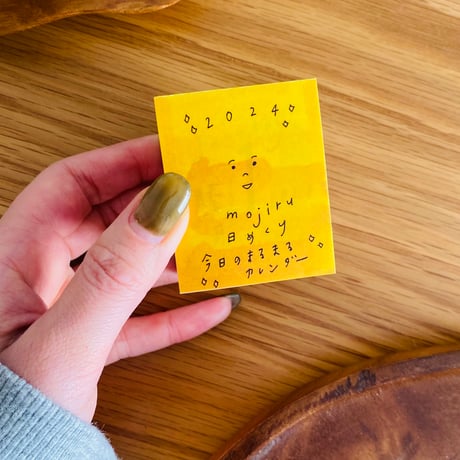 2024
mojiru
日めくり
今日のまるまる
カレンダー